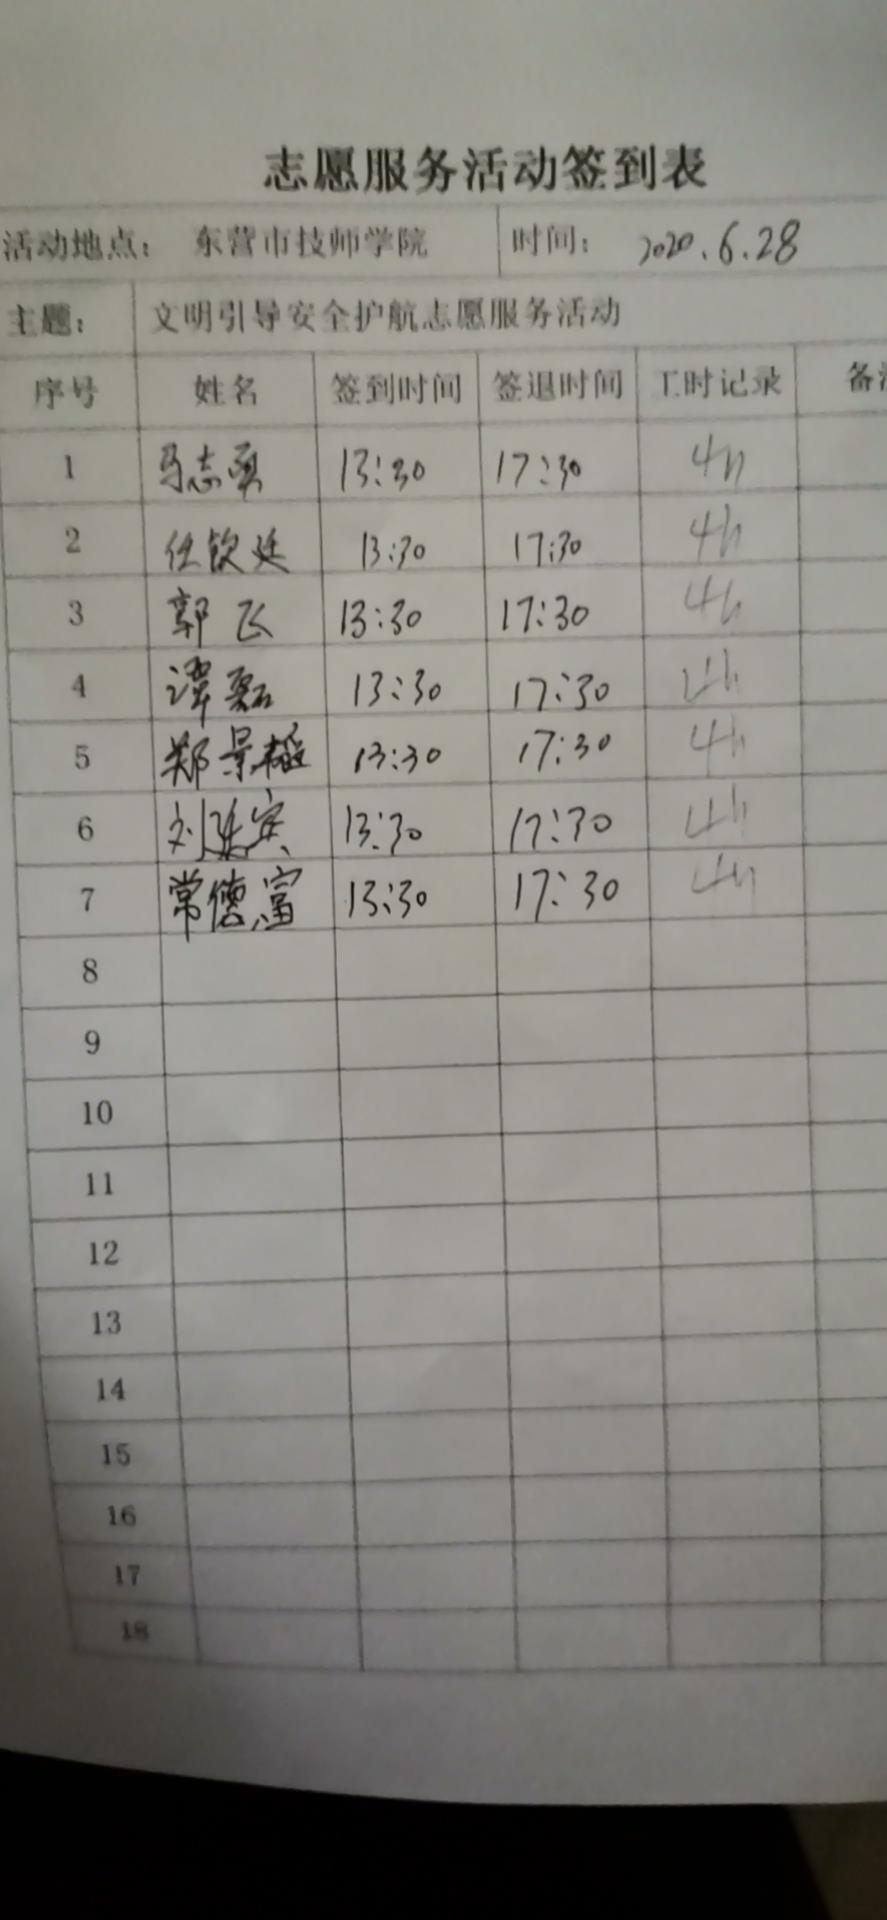 志愿服务活动签到表
活动地点: 东营市技师学院 时间: 2020.6.28
主题: 文明引导安全护航志愿服务活动
序号 姓名 签到时间 签退时间 工时记录 备
1 马志勇 13:30 17:30 4h
2 任钦廷 13:30 17:30 4h
3 郭飞 13:30 17:30 4h
4 谭磊 13:30 17:30 4h
5 郑景韬 13:30 17:30 4h
6 刘 13:30 17:30 4h
7 常德富 13:30 17:30 4h
8
9
10
11
12
13
14
15
16
17
18